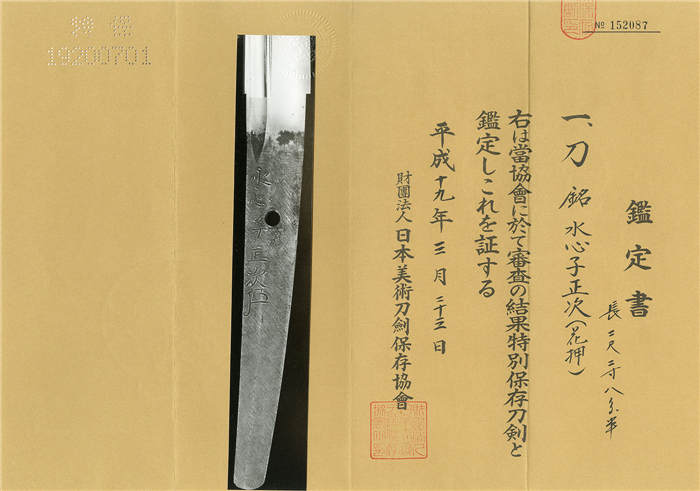 № 152087
鑑定書
一、刀 銘 水心子正次(花押)
長 二尺二寸八分半
右は當協會に於て審査の結果特別保存刀剣と
鑑定しこれを証する
平成十九年三月二十三日
財團法人 日本美術刀劍保存協會
19200701
水心子正次